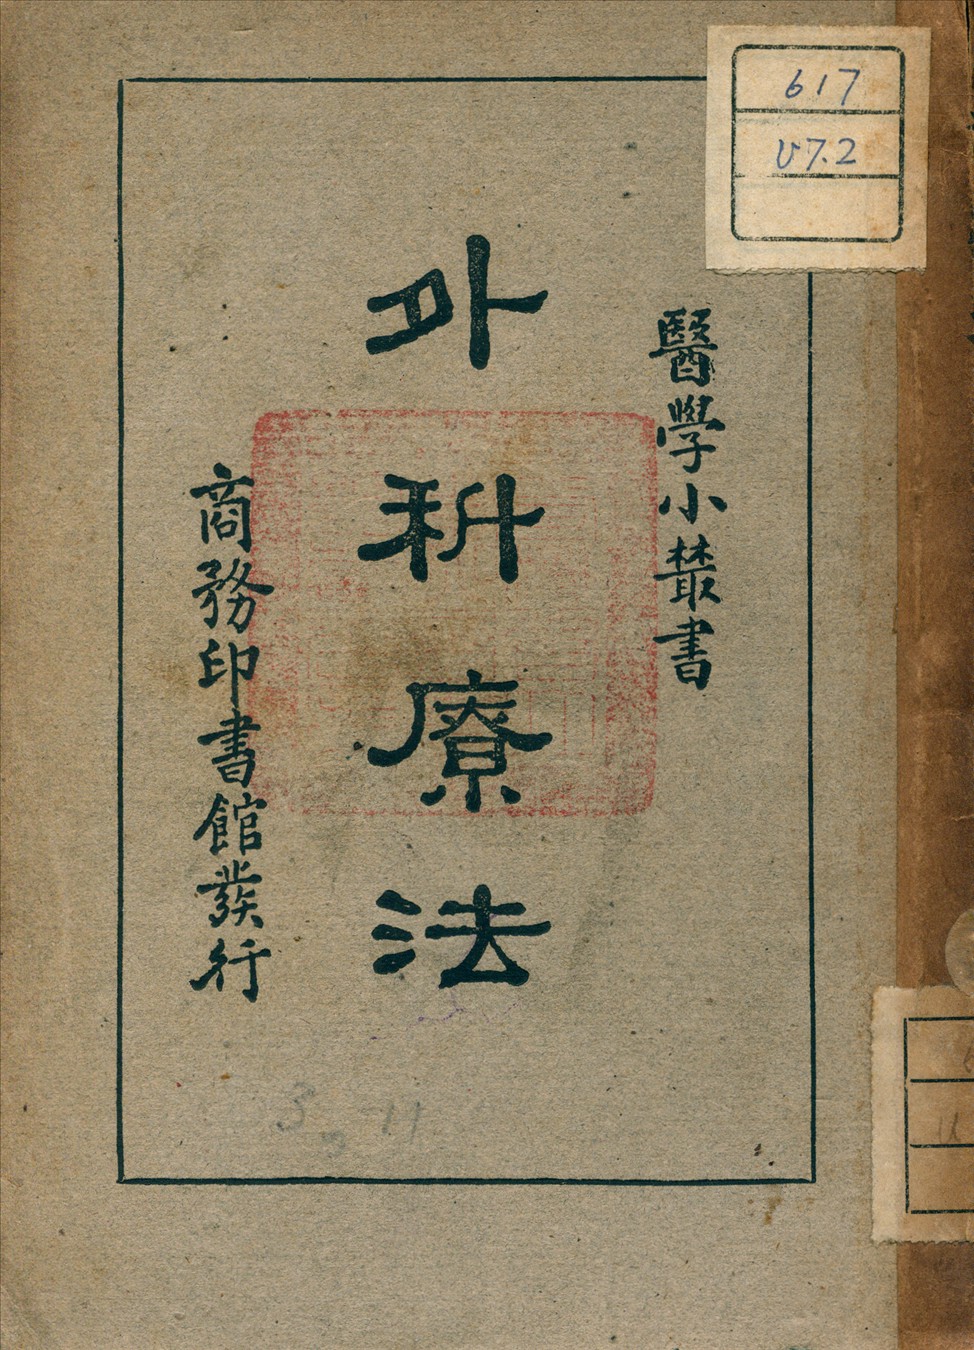 醫學小叢書
外科療法
商務印書館發行
617
U7.2